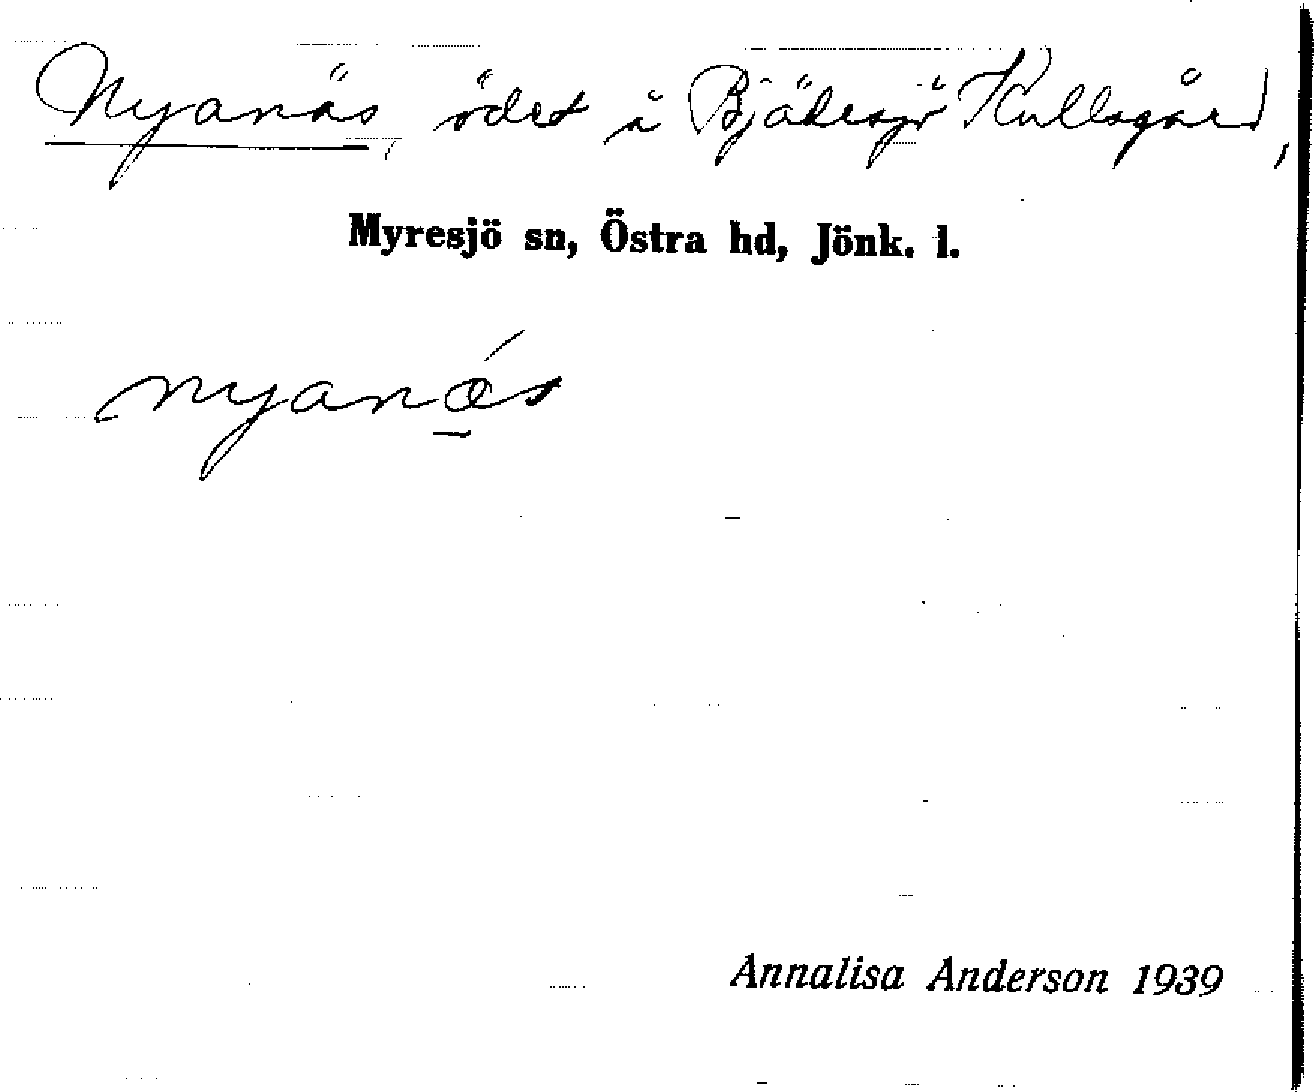 Nyanäs, ödet å Bjädesjö Kullsgård,
Myresjö sn, Östra hd, Jönk. l.
nyanǽs
Annalisa Anderson 1939